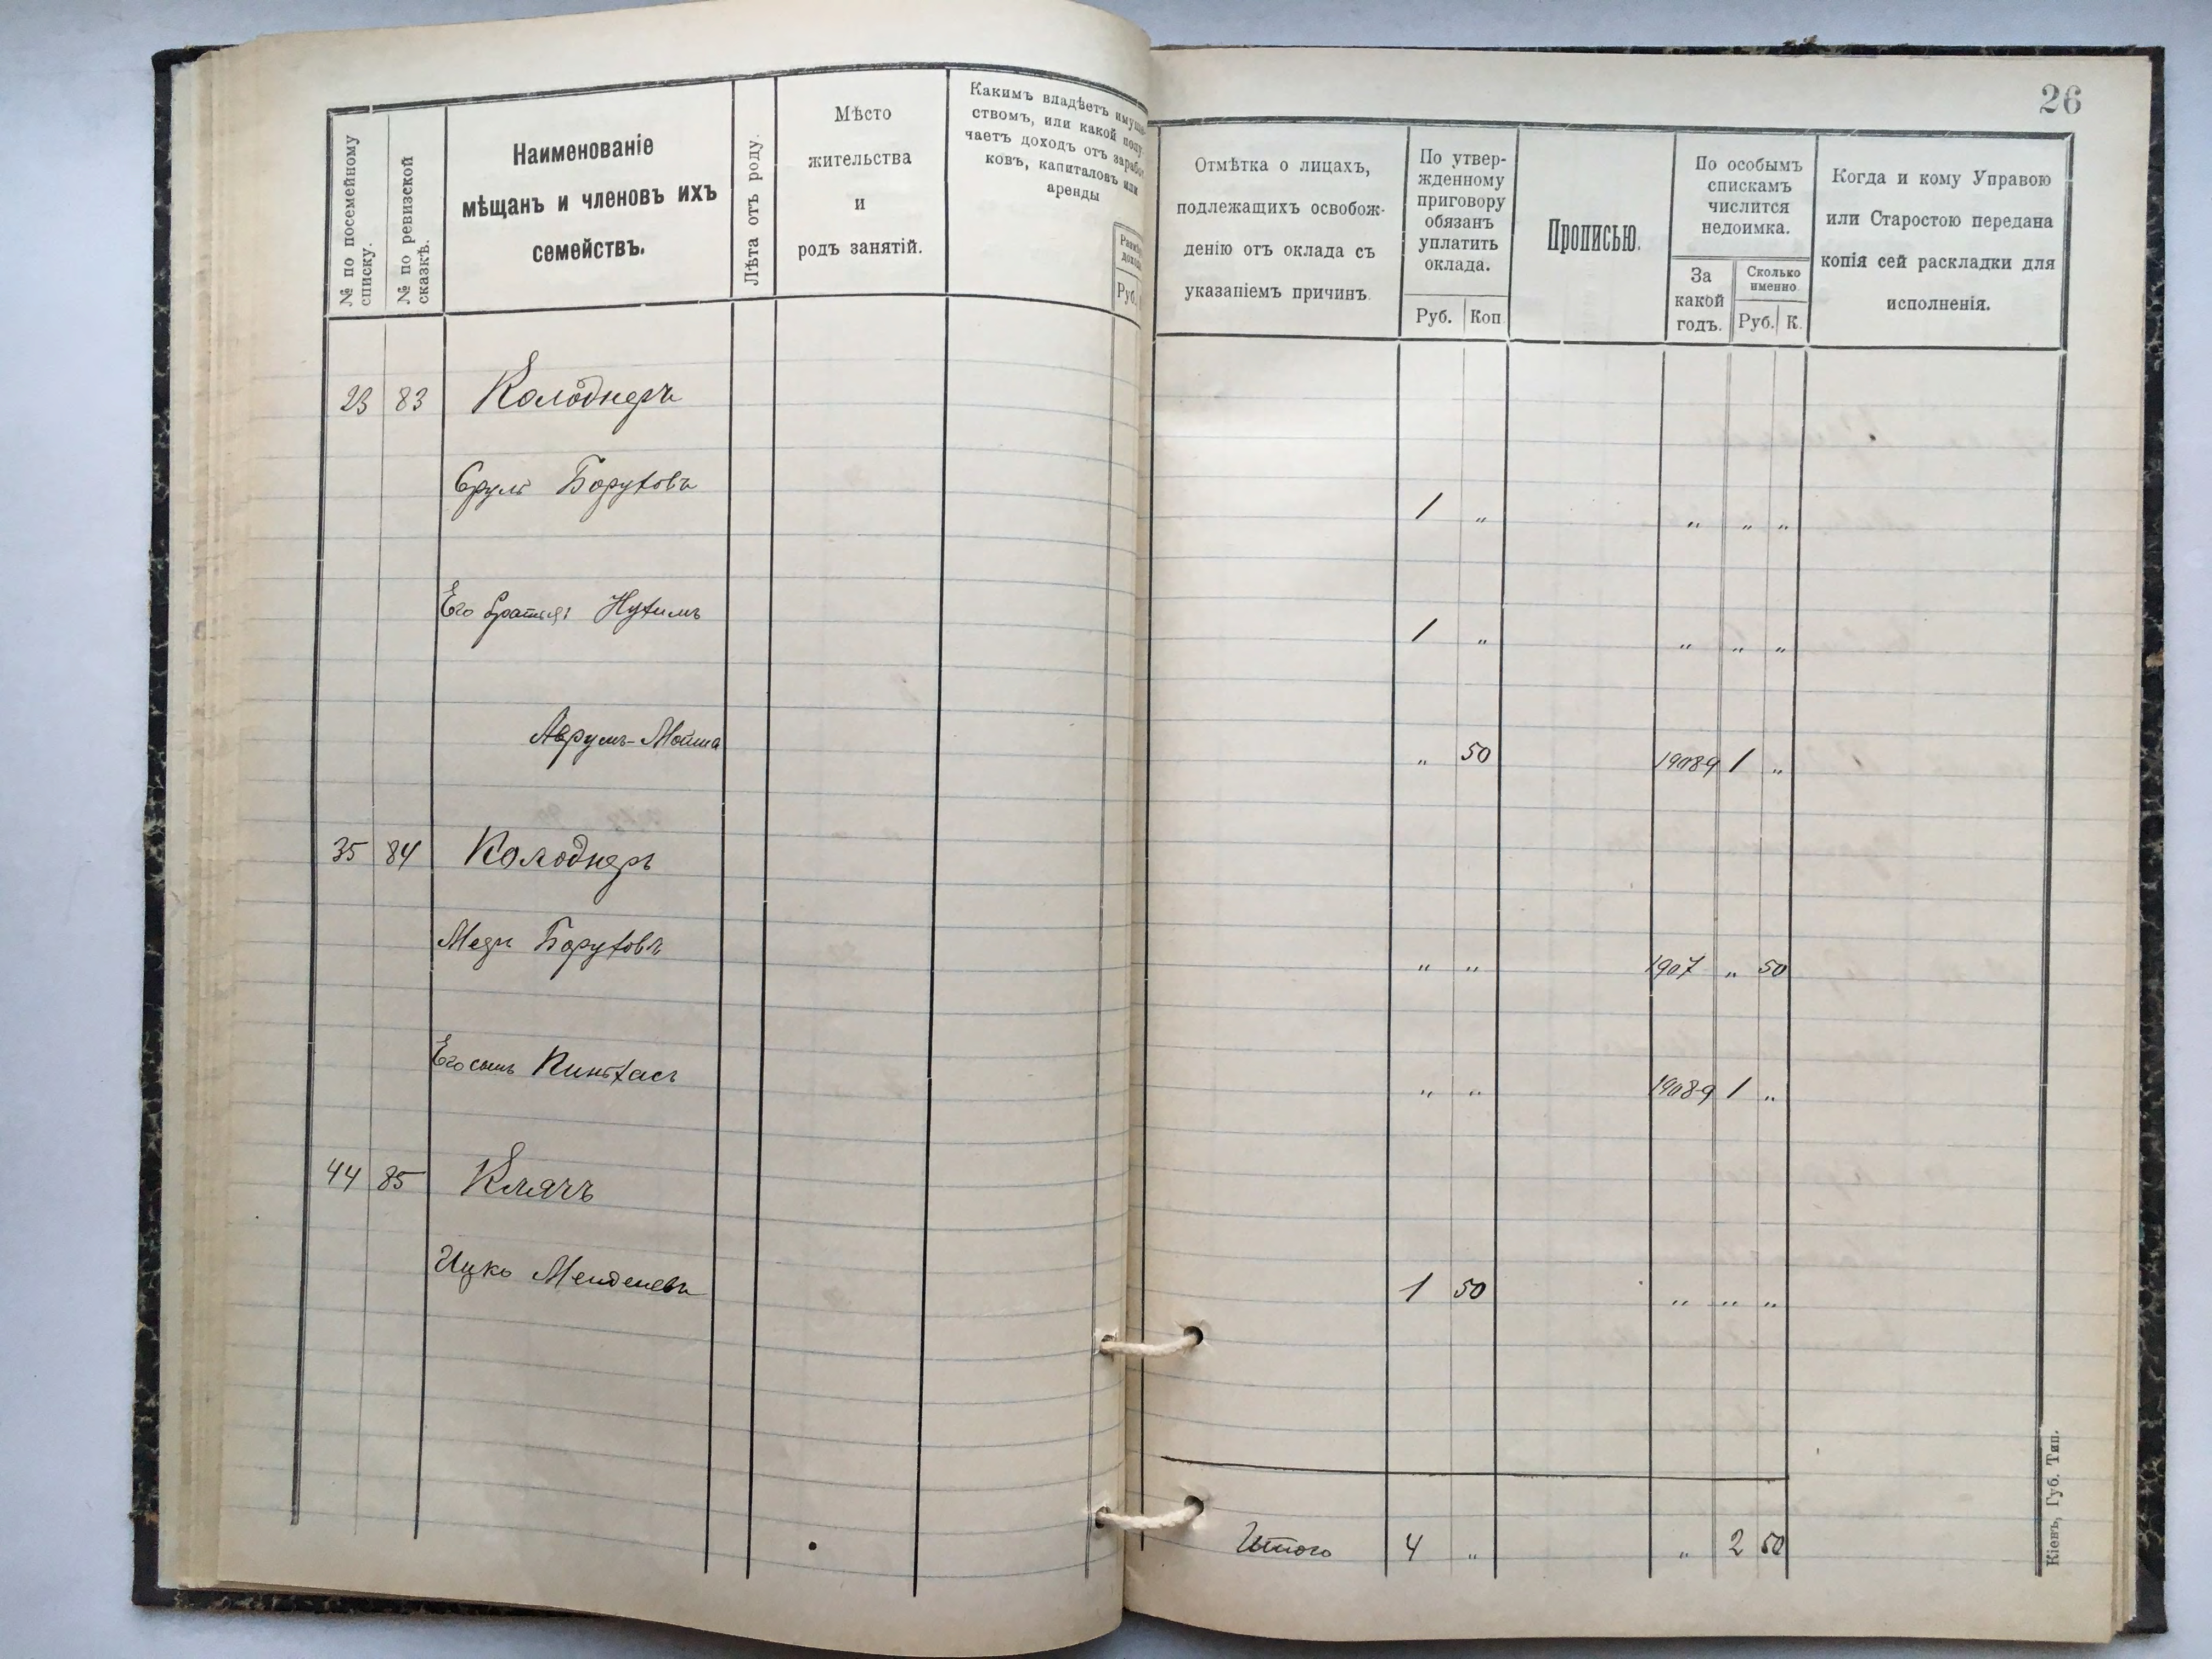 26
№ по посемейному списку.
№ по ревизской сказкѣ.
Наименованіе
мѣщанъ и членовъ ихъ
семействъ.
Лѣта отъ роду.
Мѣсто
жительства
и
родъ занятій.
Какимъ владѣетъ имуще-
ствомъ, или какой полу-
чаетъ доходъ отъ заработ-
ковъ, капиталовъ или
аренды
Руб.
Отмѣтка о лицахъ,
подлежащихъ освобож-
денію отъ оклада съ
указаніемъ причинъ.
По утвер-
жденному
приговору
обязанъ
уплатить
оклада.
Руб. Коп
Прописью.
По особымъ
спискамъ
числится
недоимка.
За
какой
годъ.
Сколько
именно
Руб. К.
Когда и кому Управою
или Старостою передана
копія сей раскладки для
исполненія.
23 83 Колоднеръ
Сруль Боруховъ 1 „ „ „ „
Его братья: Нухимъ 1 „ „ „ „
Аврумъ-Мойша „ 50 1908-9 1 „
35 84 Колоднеръ
Меер Боруховъ „ „ 1907 „ 50
Его сынъ Пинхасъ „ „ 1908-9 1 „
44 85 Клячъ
Ицко Менделевъ 1 50 „ „ „
Итого 4 „ „ 2 50
Кіевъ, Губ. Тип.